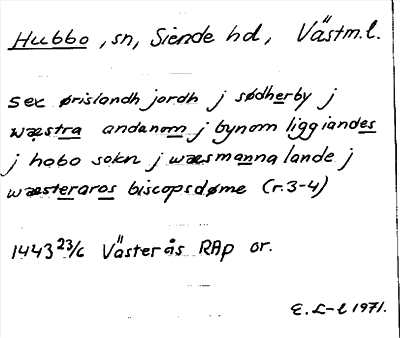 Hubbo, sn, Siende hd, Västm.l.
sex ørislandh jordh j sødherby j
wæstra andanom j bynom liggiandes
j hobo sokn j wæsmanna lande j
wæsteraros biscopsdøme (r.3-4)
1443 23/6 Västerås RAp or.
E. L-l 1971.